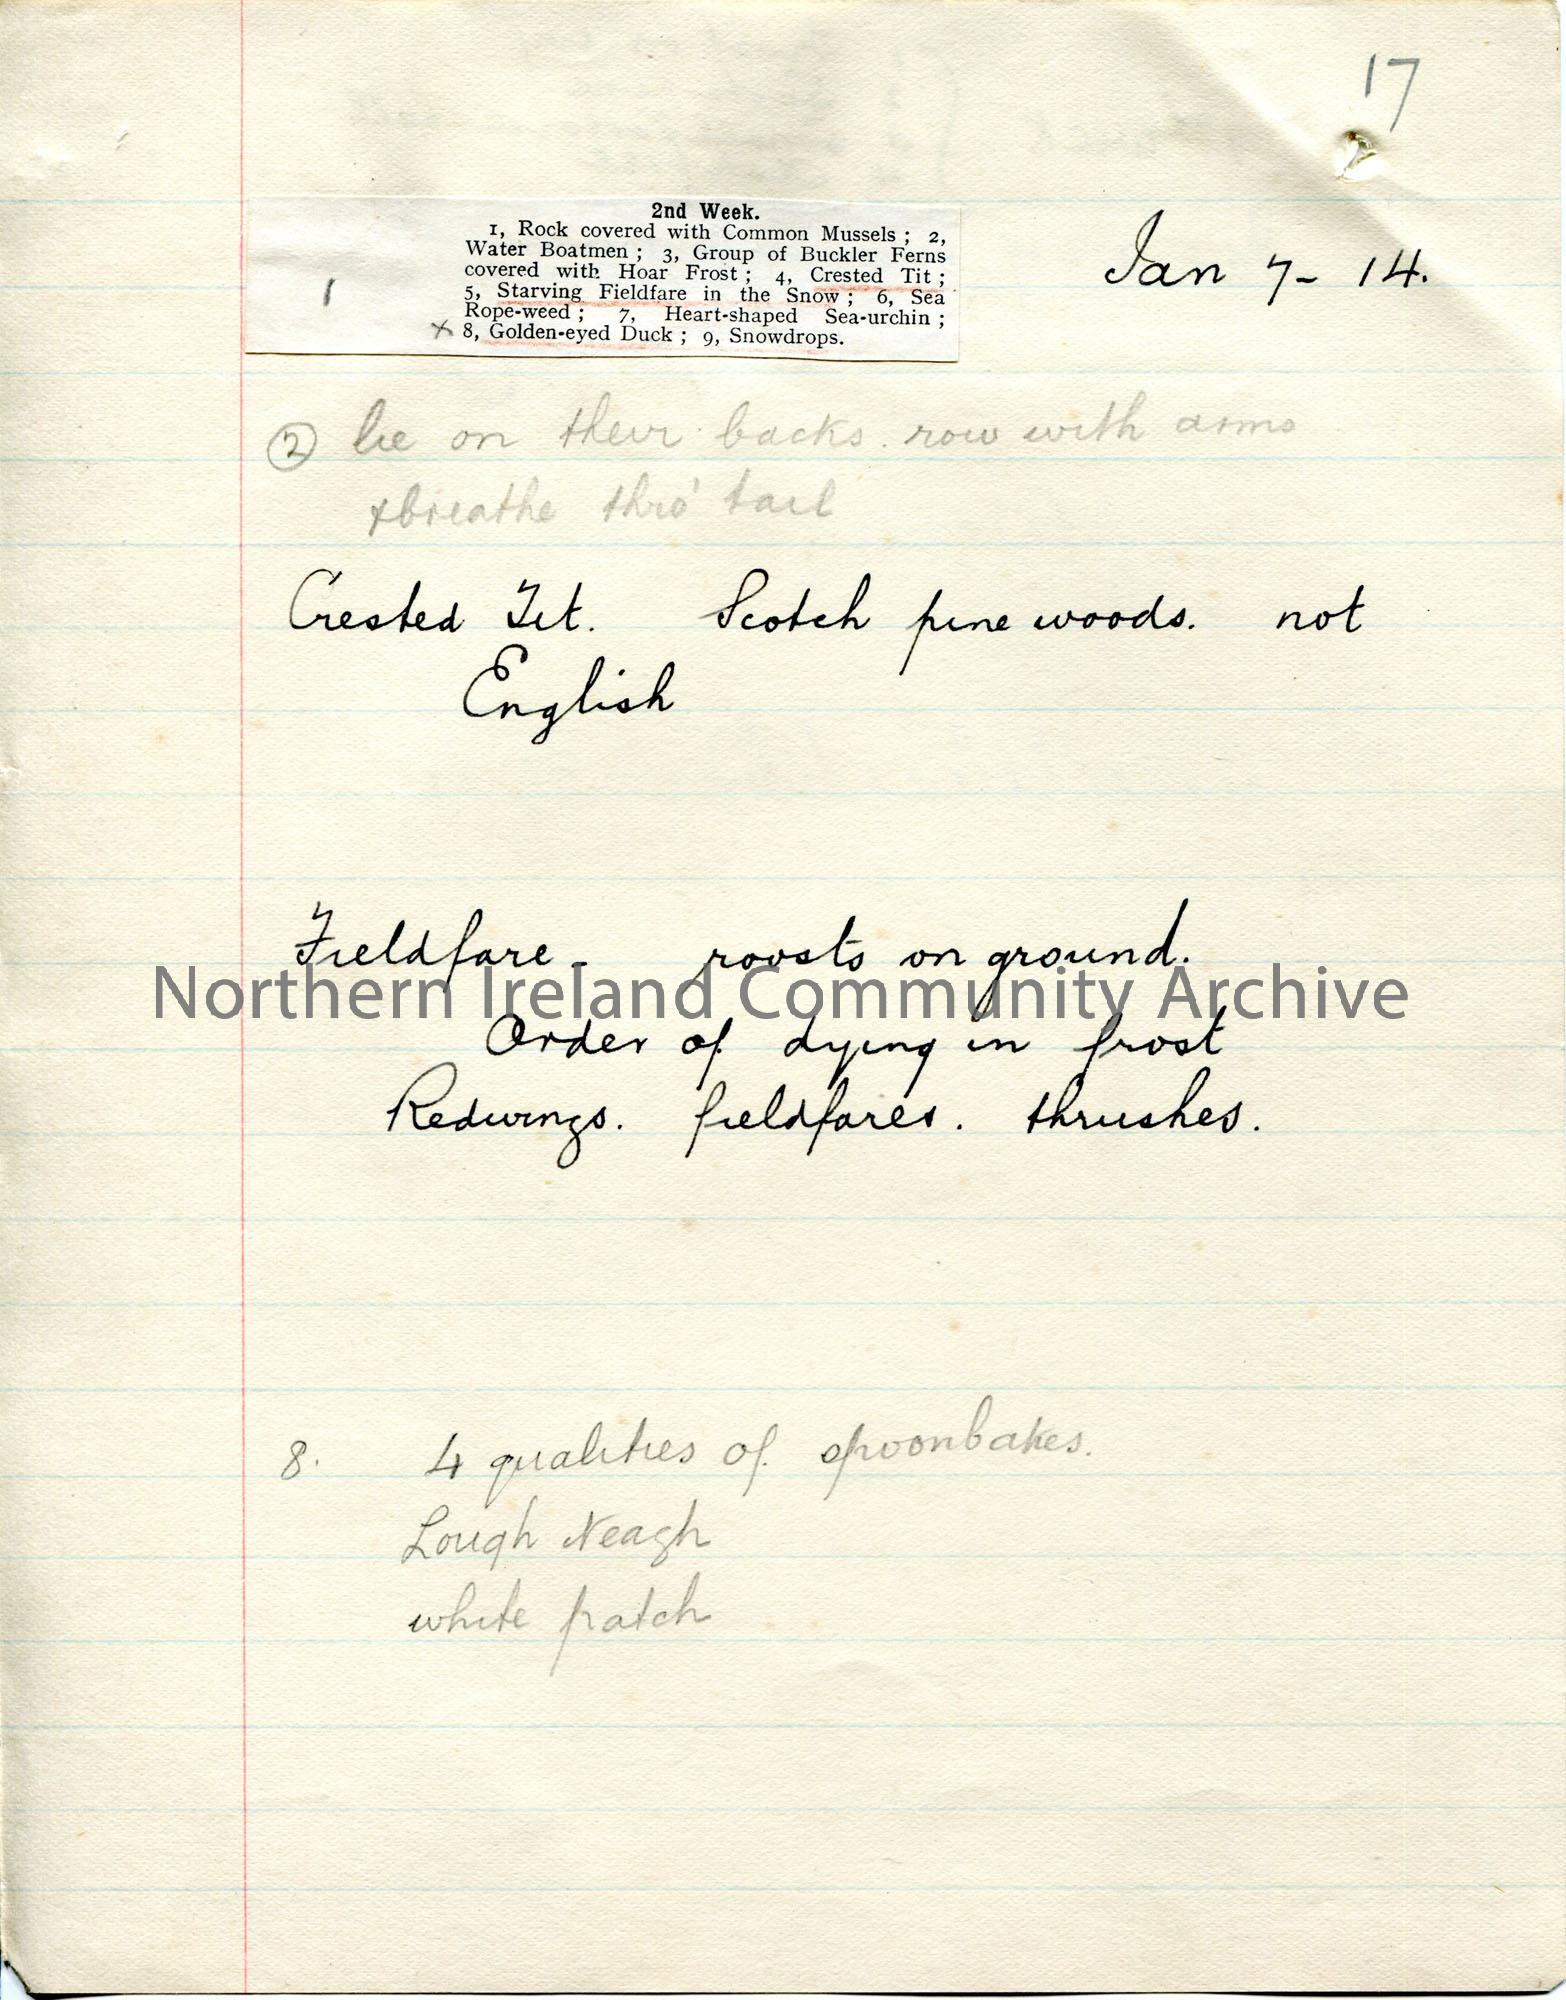 17
2nd Week.
1, Rock covered with Common Mussels ; 2,
Water Boatmen ; 3, Group of Buckler Ferns
covered with Hoar Frost ; 4, Crested Tit ;
5, Starving Fieldfare in the Snow ; 6, Sea
Rope-weed ; 7, Heart-shaped Sea-urchin ;
x 8, Golden-eyed Duck ; 9, Snowdrops.
1
Jan 7 - 14.
② lie on their backs. row with arms
& breathe thro' tail
Crested Tit. Scotch pine woods. not
English
Fieldfare - roosts on ground.
Northern Ireland Community Archive
Order of dying in frost
Redwings. fieldfares. thrushes.
8. 4 qualities of spoonbakes.
Lough Neagh
white patch